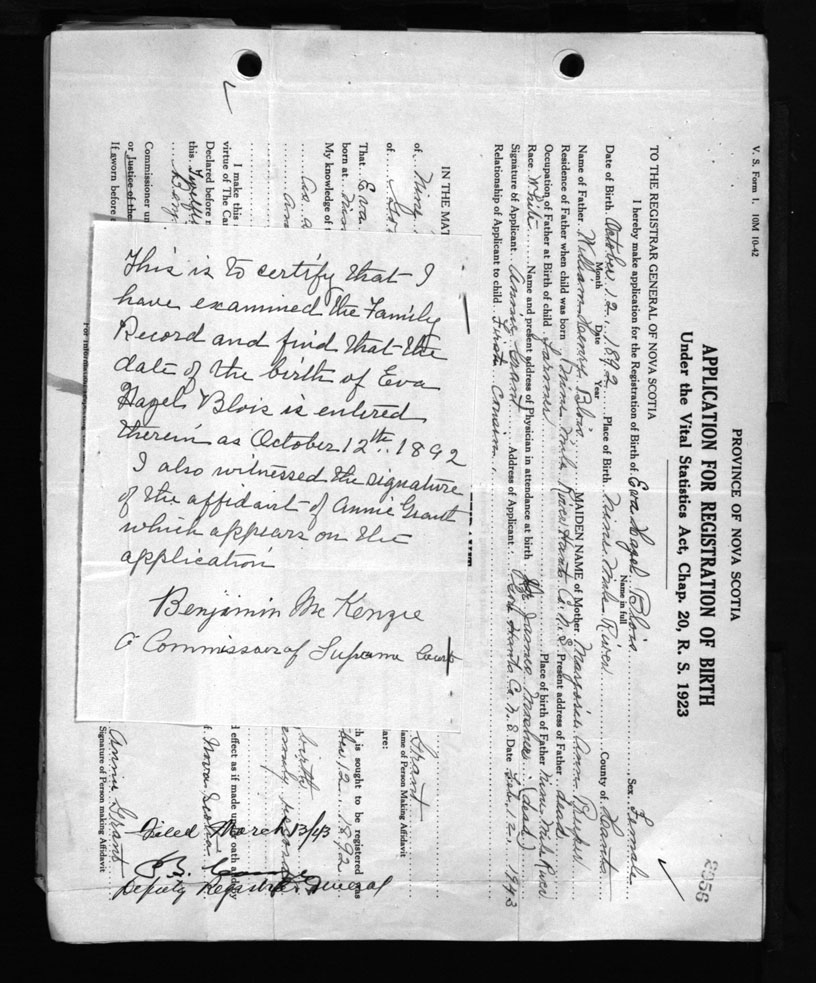 V. S. Form 1, 10M 10-42
PROVINCE OF NOVA SCOTIA
2956
APPLICATION FOR REGISTRATION OF BIRTH
Under the Vital Statistics Act, Chap. 20, R. S. 1923
TO THE REGISTRAR GENERAL OF NOVA SCOTIA
I hereby make application for the Registration of Birth of Eva Hazel Blois Sex Female
Name in full
Date of Birth October 12 1892 Place of Birth Nine Mile River County of Hants
Month Date Year
Name of Father William Henry Blois MAIDEN NAME of Mother Ann
Residence of Father when child was born Nine Mile River Hants Co. N.S. Present address of Father dead
Occupation of Father at Birth of child Farmer Place of birth of Father Nine Mile River
Race White Name and present address of Physician in attendance at birth James (dead)
Signature of Applicant Annie Grant Address of Applicant Hants Co. N.S. Date Feb. 12 1943
Relationship of Applicant to child First Cousin
IN THE MAT
of Nine
of
That Eva
born at Nine
My knowledge of
as a
I make this
virtue of The Ca
Declared before
this Twelfth
Benj
Commissioner
or Justice of the
If sworn before
This is to certify that I
have examined the Family
Record and find that the
date of the birth of Eva
Hazel Blois is entered
therein as October 12th 1892
I also witnessed the signature
of the affidavit of Annie Grant
which appears on the
application
Benjamin McKenzie
A Commissoer of Supreme Court
Grant
Name of Person Making Affidavit
are:
h is sought to be registered was
12 1892
birth
personal
d effect as if made under oath and by
Nova Scotia
Annie Grant
Signature of Person making Affidavit
Filed March 13/43
Deputy Registrar General